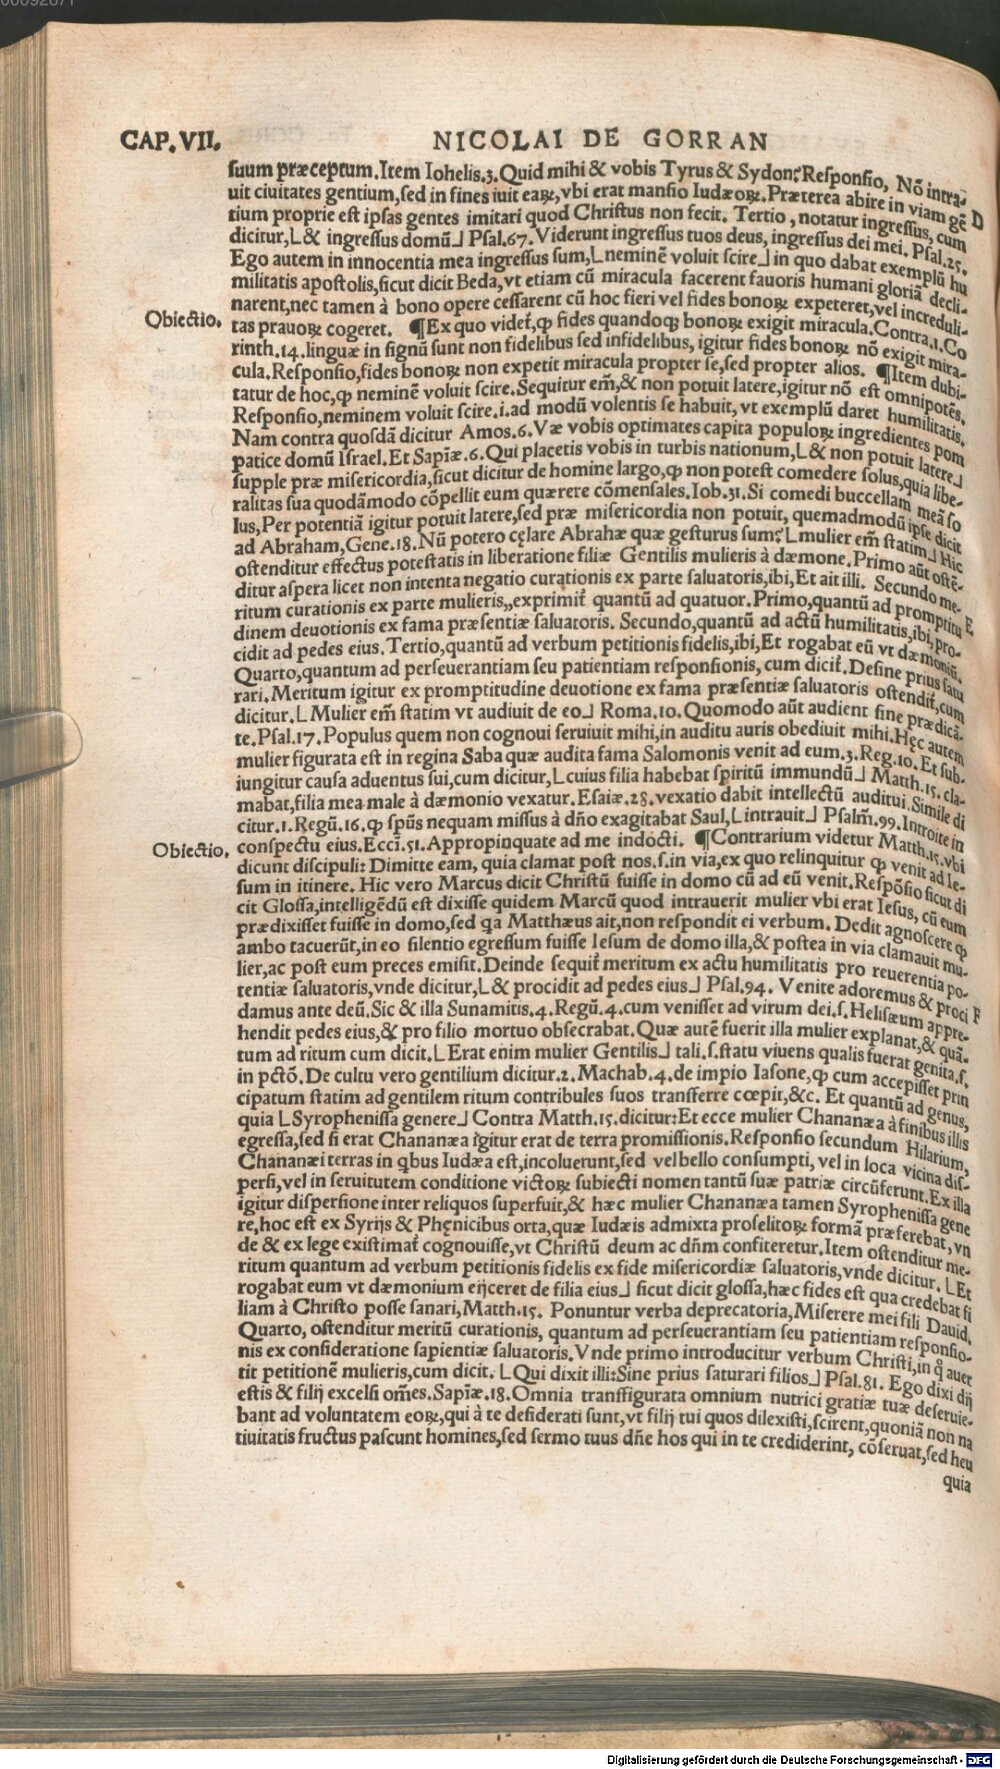 00092877
CAP.VII. NICOLAI DE GORRAN
suum præceptum.Item Iohelis.3.Quid mihi & vobis Tyrus & Sydon? Responsio, Nõ intra-
uit ciuitates gentium,sed in fines iuit eaꝝ,vbi erat mansio Iudæoꝝ.Præterea abire in viam gē D
tium proprie est ipsas gentes imitari quod Christus non fecit. Tertio, notatur ingressus, cum
dicitur,L& ingressus domū⅃ Psal.67.Viderunt ingressus tuos deus, ingressus dei mei. Psal.25.
Ego autem in innocentia mea ingressus sum,Lneminē voluit scire⅃ in quo dabat exemplū hu
militatis apostolis,sicut dicit Beda,vt etiam cū miracula facerent fauoris humani gloriā decli-
narent,nec tamen à bono opere cessarent cū hoc fieri vel fides bonoꝝ expeteret,vel increduli-
Obiectio. tas prauoꝝ cogeret. ¶Ex quo videt᷑,ꝙ fides quandoqꝫ bonoꝝ exigit miracula.Contra.1.Co
rinth.14.linguæ in signū sunt non fidelibus sed infidelibus, igitur fides bonoꝝ nõ exigit mira-
cula.Responsio,fides bonoꝝ non expetit miracula propter se,sed propter alios. ¶Item dubi-
tatur de hoc,ꝙ neminē voluit scire.Sequitur em̃,& non potuit latere,igitur nõ est omnipotēs.
Responsio,neminem voluit scire.i.ad modū volentis se habuit, vt exemplū daret humilitatis.
Nam contra quosdā dicitur Amos.6.Væ vobis optimates capita populoꝝ ingredientes pom
patice domū Israel.Et Sapiæ.6.Qui placetis vobis in turbis nationum,L& non potuit latere⅃
supple præ misericordia,sicut dicitur de homine largo,ꝙ non potest comedere solus,quia libe-
ralitas sua quodãmodo cõpellit eum quærere cõmensales.Iob.31.Si comedi buccellam meā so
lus,Per potentiā igitur potuit latere,sed præ misericordia non potuit, quemadmodū ipse dicit
ad Abraham,Gene.18.Nū potero cęlare Abrahæ quæ gesturus sum? Lmulier em̃ statim⅃ Hic
ostenditur effectus potestatis in liberatione filiæ Gentilis mulieris à dæmone. Primo aūt ostē-
ditur aspera licet non intenta negatio curationis ex parte saluatoris,ibi,Et ait illi. Secundo me-
ritum curationis ex parte mulieris,,exprimit᷑ quantū ad quatuor.Primo,quantū ad promptitu E
dinem deuotionis ex fama præsentiæ saluatoris. Secundo,quantū ad actū humilitatis,ibi,pro-
cidit ad pedes eius. Tertio,quantū ad verbum petitionis fidelis,ibi,Et rogabat eū vt dæmoniū.
Quarto,quantum ad perseuerantiam seu patientiam responsionis, cum dicit᷑.Desine prius satu
rari.Meritum igitur ex promptitudine deuotione ex fama præsentiæ saluatoris ostendit᷑,cum
dicitur.LMulier em̃ statim vt audiuit de eo⅃ Roma.10. Quomodo aūt audient sine prædicā-
te.Psal.17.Populus quem non cognoui seruiuit mihi,in auditu auris obediuit mihi.Hęc autem
mulier figurata est in regina Saba quæ audita fama Salomonis venit ad eum.3.Reg.10.Et sub-
iungitur causa aduentus sui,cum dicitur,Lcuius filia habebat spiritū immundū⅃ Matth.15.cla-
mabat,filia mea male à dæmonio vexatur.Esaiæ.28.vexatio dabit intellectū auditui.Simile di
citur.1.Regū.16.ꝙ sp̃us nequam missus à dño exagitabat Saul,Lintrauit⅃ Psalm̃.99.Introite in
Obiectio. conspectu eius.Ecci̅.51.Appropinquate ad me indocti. ¶Contrarium videtur Matth.15.vbi
dicunt discipuli: Dimitte eam, quia clamat post nos.s.in via,ex quo relinquitur ꝙ venit ad Ie-
sum in itinere. Hic vero Marcus dicit Christū fuisse in domo cū ad eū venit.Respõsio sicut di
cit Glossa,intelligēdū est dixisse quidem Marcū quod intrauerit mulier vbi erat Iesus, cū eum
prædixisset fuisse in domo,sed qa Matthæus ait,non respondit ei verbum. Dedit agnoscere ꝙ
ambo tacuerūt,in eo silentio egressum fuisse Iesum de domo illa,& postea in via clamauit mu-
lier,ac post eum preces emisit.Deinde sequit᷑ meritum ex actu humilitatis pro reuerentia po-
tentiæ saluatoris,vnde dicitur,L& procidit ad pedes eius⅃ Psal.94. Venite adoremus & proci F
damus ante deū. Sic & illa Sunamitis.4.Regū.4.cum venisset ad virum dei.s.Helisæum appre-
hendit pedes eius,& pro filio mortuo obsecrabat. Quæ autē fuerit illa mulier explanat,& quā-
tum ad ritum cum dicit.LErat enim mulier Gentilis⅃ tali.s.statu viuens qualis fuerat genita.s.
in pctõ.De cultu vero gentilium dicitur.2.Machab.4.de impio Iasone,ꝙ cum accepisset prin
cipatum statim ad gentilem ritum contribules suos transferre cœpit,&c. Et quantū ad genus,
quia LSyrophenissa genere⅃ Contra Matth.15.dicitur:Et ecce mulier Chananæa à finibus illis
egressa,sed si erat Chananæa igitur erat de terra promissionis.Responsio secundum Hilarium,
Chananæi terras in qbus Iudæa est,incoluerunt,sed vel bello consumpti, vel in loca vicina dis-
persi,vel in seruitutem conditione victoꝝ subiecti nomen tantū suæ patriæ circūferunt.Ex illa
igitur dispersione inter reliquos superfuit,& hæc mulier Chananæa tamen Syrophenissa gene
re,hoc est ex Syrijs & Phęnicibus orta,quæ Iudæis admixta proselitoꝝ formā præferebat, vn
de & ex lege existimat᷑ cognouisse,vt Christū deum ac dñm confiteretur.Item ostenditur me-
ritum quantum ad verbum petitionis fidelis ex fide misericordiæ saluatoris,vnde dicitur. LEt
rogabat eum vt dæmonium eijceret de filia eius⅃ sicut dicit glossa,hæc fides est qua credebat fi
liam à Christo posse sanari,Matth.15. Ponuntur verba deprecatoria,Miserere mei fili Dauid.
Quarto, ostenditur meritū curationis, quantum ad perseuerantiam seu patientiam responsio-
nis ex consideratione sapientiæ saluatoris.Vnde primo introducitur verbum Christi,in q̃ auer
tit petitionē mulieris,cum dicit. LQui dixit illi:Sine prius saturari filios⅃ Psal.81. Ego dixi dij
estis & filij excelsi om̃es.Sapiæ.18.Omnia transfigurata omnium nutrici gratiæ tuæ deseruie-
bant ad voluntatem eoꝝ,qui à te desiderati sunt,vt filij tui quos dilexisti,scirent,quoniā non na
tiuitatis fructus pascunt homines,sed sermo tuus dñe hos qui in te crediderint, cõseruat,sed heu
quia
Digitalisierung gefördert durch die Deutsche Forschungsgemeinschaft - DFG